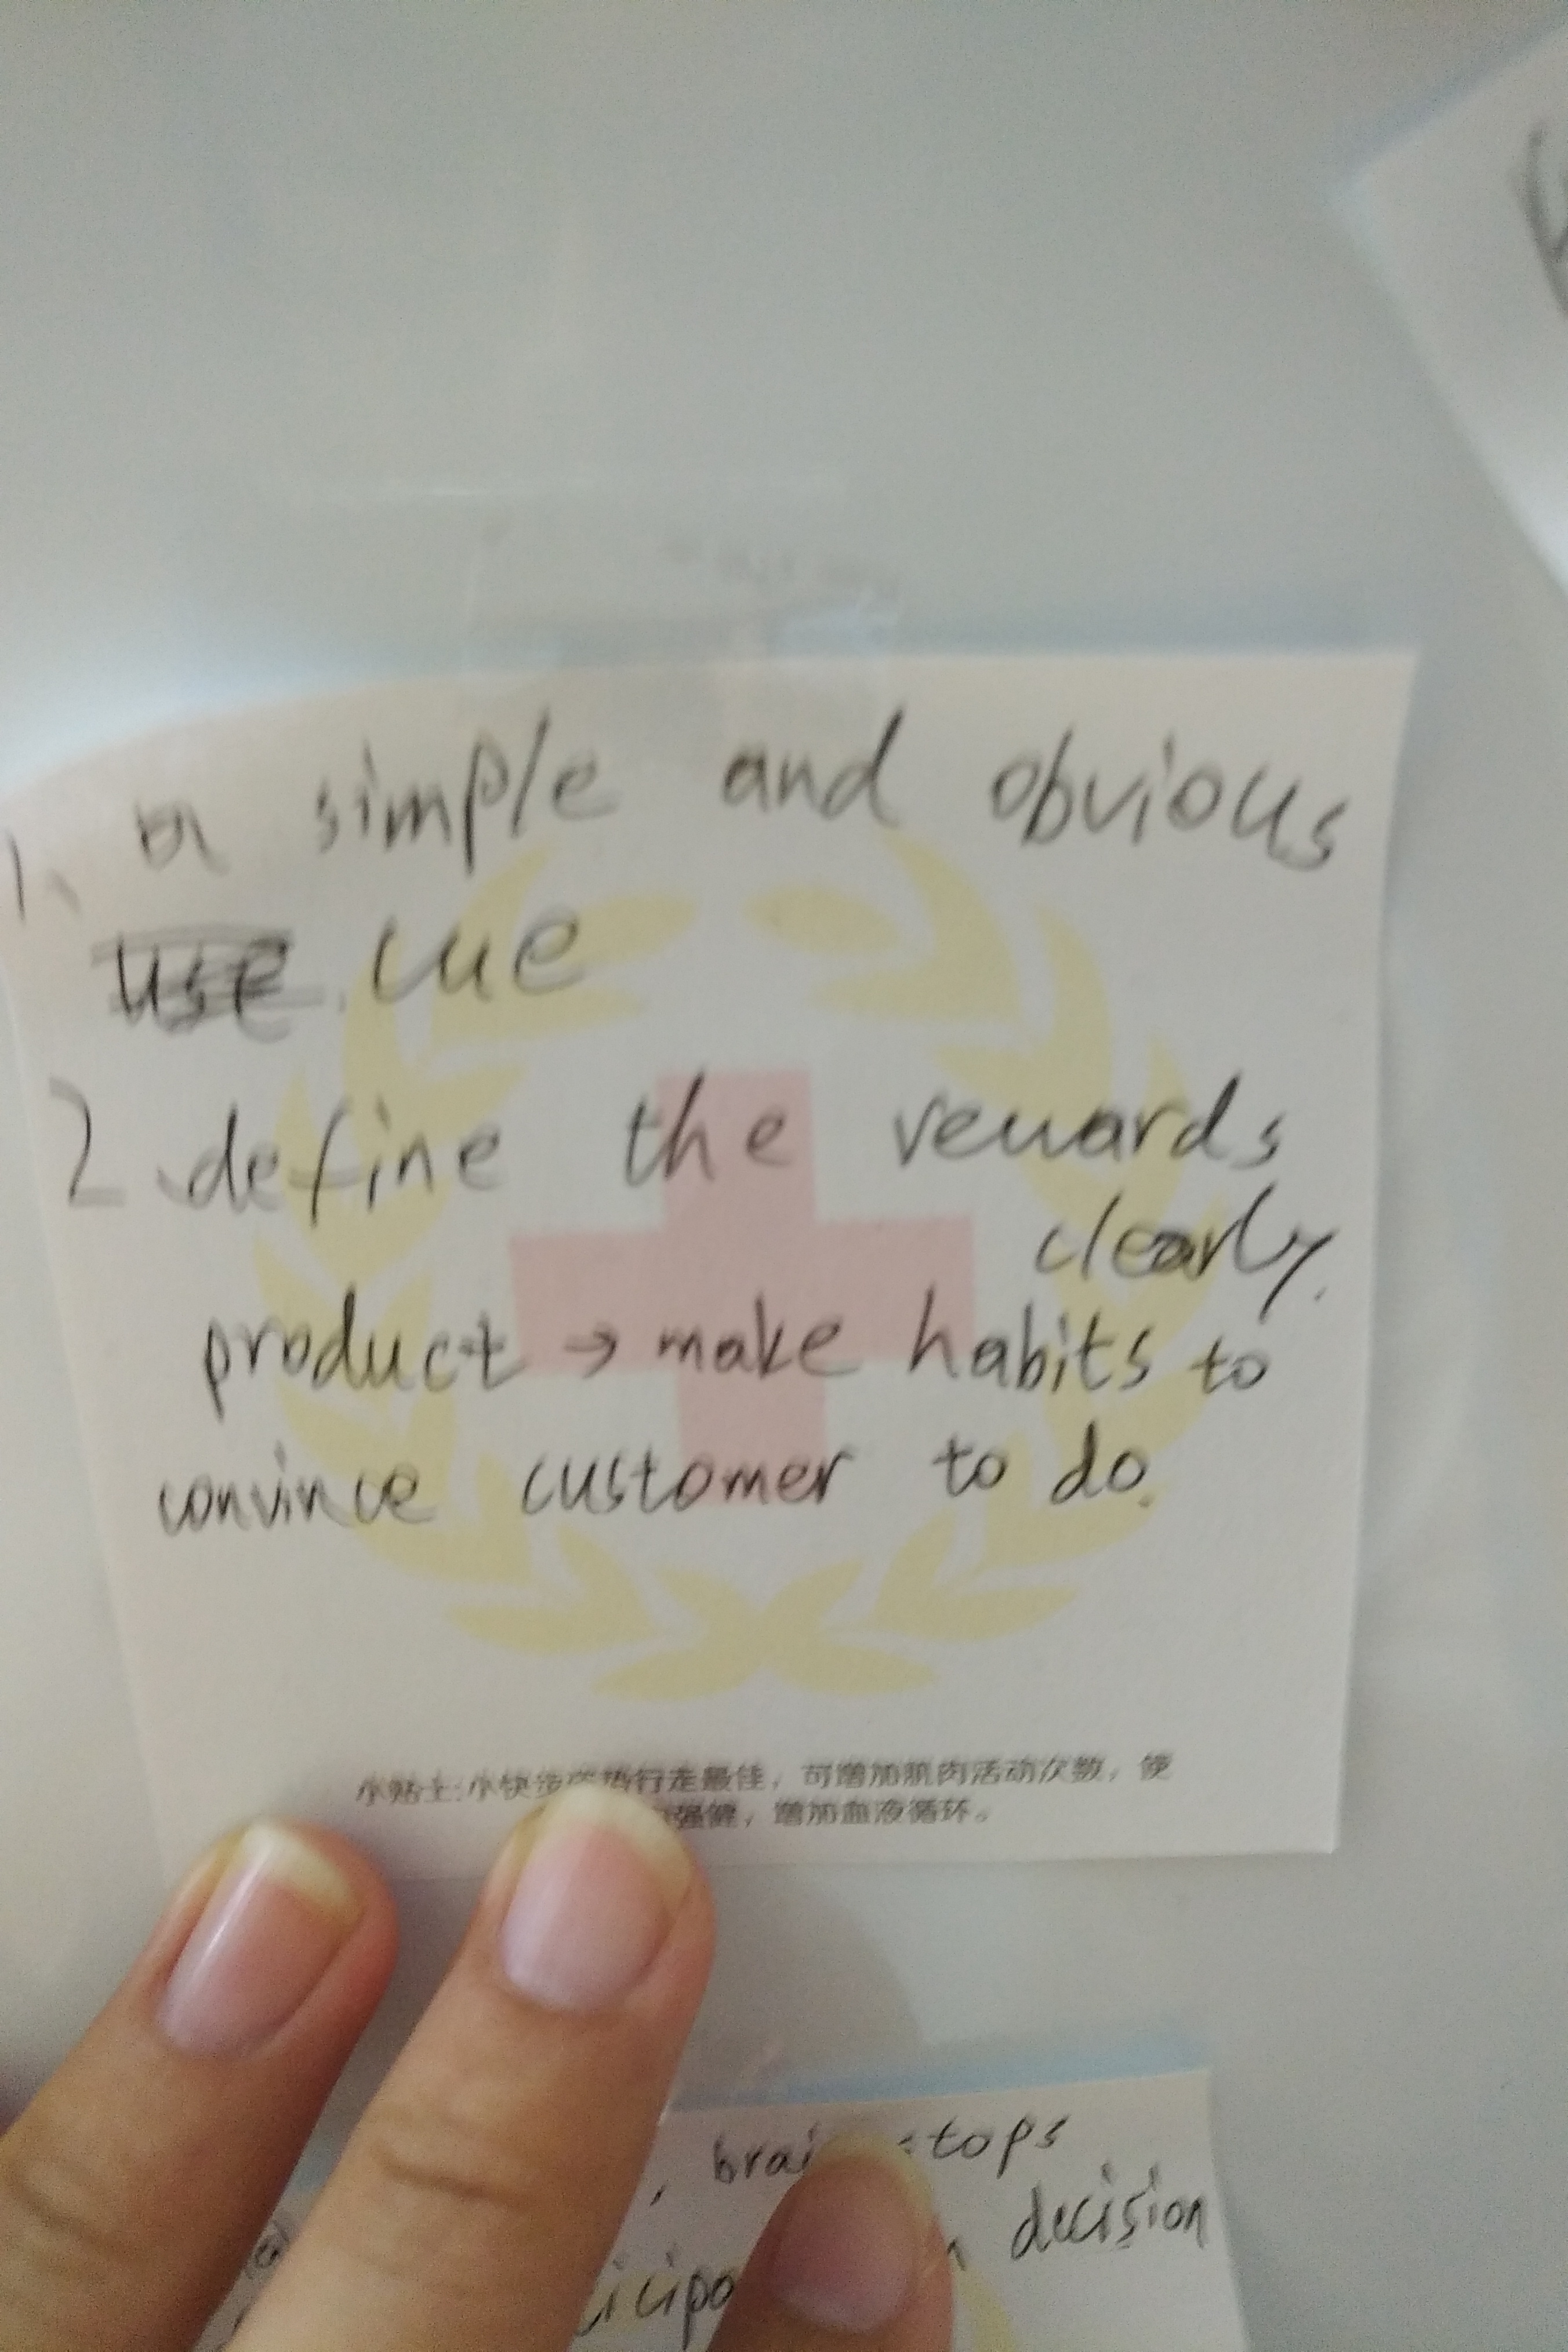 1、a simple and obvious
cue
2、define the rewards
clearly.
product → make habits to
convince customer to do.
小贴士:小快步行走最佳，可增加肌肉活动次数，使
强健，增加血液循环。
, brain stops
decision